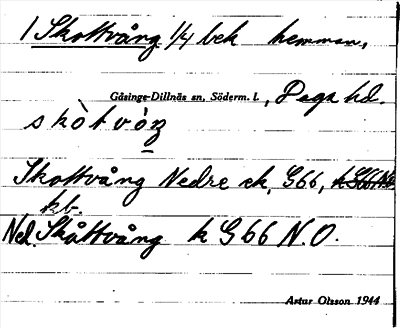 1 Skottvång 1/4 bek hemman,
Gåsinge-Dillnäs sn, Söderm. l., Daga hd.
skòtvòŋ
Skottvång Nedre ek, G66,
kb.
Ned. Skåttvång k G66 N.O.
Artur Olsson 1944